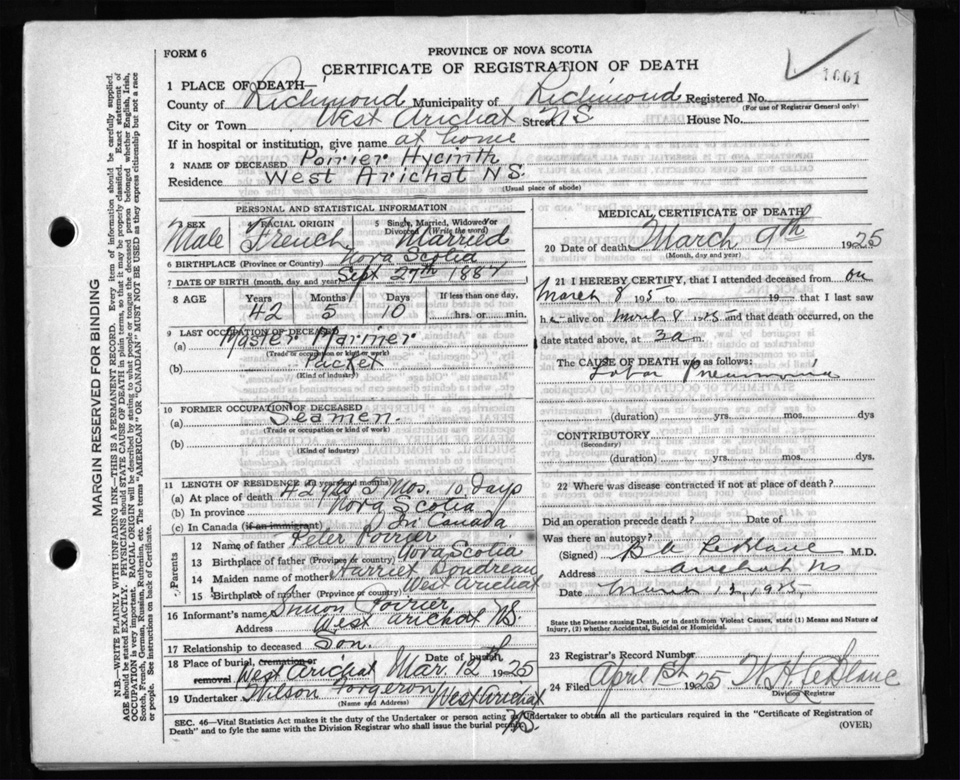 FORM 6
PROVINCE OF NOVA SCOTIA
CERTIFICATE OF REGISTRATION OF DEATH
1661
1 PLACE OF DEATH—
County of Richmond Municipality of Richmond Registered No.
(For use of Registrar General only)
City or Town West Arichat Street N.S. House No.
If in hospital or institution, give name at home
2 NAME OF DECEASED Poirier Hycinth
Residence West Arichat N.S.
(Usual place of abode)
PERSONAL AND STATISTICAL INFORMATION
3 SEX Male
4 RACIAL ORIGIN French
5 Single, Married, Widowed or Divorced (Write the word) Married
6 BIRTHPLACE (Province or Country) Nova Scotia
7 DATE OF BIRTH (month, day, and year) Sept 27th 1882
8 AGE Years Months Days If less than one day,
42 5 10 hrs. or min.
9 LAST OCCUPATION OF DECEASED
(a) Master Marmier
(Trade or occupation or kind of work)
(b) Packet
(Kind of industry)
10 FORMER OCCUPATION OF DECEASED
(a) Seamen.
(Trade or occupation or kind of work)
(b)
(Kind of industry)
11 LENGTH OF RESIDENCE (In years and months)
(a) At place of death 42 yrs 5 Mos. 10 days
(b) In province Nova Scotia
(c) In Canada (if an immigrant) In Canada
Parents
12 Name of father Peter Poirier
13 Birthplace of father (Province or country) Nova Scotia
14 Maiden name of mother Harriet Boudreau
15 Birthplace of mother (Province or country) West Arichat
16 Informant's name Simon Poirier
Address West Arichat N.S.
17 Relationship to deceased Son.
18 Place of burial, cremation or removal West Arichat Date of burial, Mar 12th 1925
19 Undertaker Wilson Forgeron West Arichat N.S.
(Name and Address)
MEDICAL CERTIFICATE OF DEATH
20 Date of death March 9th 1925
(Month, day and year)
21 I HEREBY CERTIFY, that I attended deceased from on
March 8 1925 to 19 that I last saw
he alive on March 8 1925 and that death occurred, on
date stated above, at 3 a m.
The CAUSE OF DEATH was as follows:
Lobar Pneumonia
(duration) yrs. mos. dys
CONTRIBUTORY
(Secondary)
(duration) yrs. mos. dys.
22 Where was disease contracted if not at place of death?
Did an operation precede death? Date of
Was there an autopsy?
(Signed) B A LeBlanc M.D.
Address Arichat NS
Date March 1925
State the Disease causing Death, or in death from Violent Causes, state (1) Means and Nature of Injury, (2) whether Accidental, Suicidal or Homicidal.
23 Registrar's Record Number
24 Filed April 1st 1925 W H LeBlanc
Division Registrar
SEC. 46—Vital Statistics Act makes it the duty of the Undertaker or person acting as Undertaker to obtain all the particulars required in the "Certificate of Registration of
Death" and to fyle the same with the Division Registrar who shall issue the burial permit.
(OVER)
MARGIN RESERVED FOR BINDING
N.B.—WRITE PLAINLY WITH UNFADING INK—THIS IS A PERMANENT RECORD. Every item of information should be carefully supplied.
AGE should be stated EXACTLY. PHYSICIANS should STATE CAUSE OF DEATH in plain terms, so that it may be properly classified. Exact statement of
OCCUPATION is very important. RACIAL ORIGIN will be described by stating to what people or tongue the deceased person belonged whether English, Irish,
Scotch, French, German, Russian, Ruthenian, etc. The terms "AMERICAN" OR "CANADIAN" MUST NOT BE USED as they express citizenship but not a race
or people. See instructions on back of Certificate.